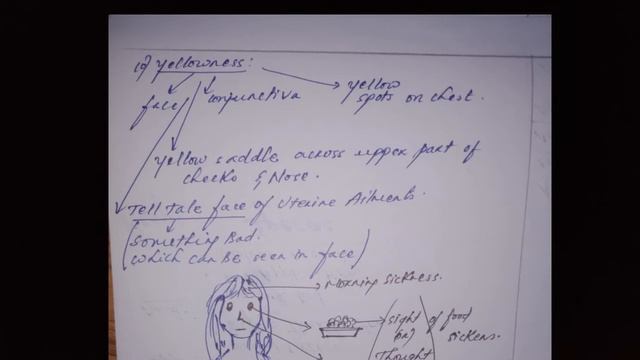 19) Yellowness:
face
conjunctiva
Yellow
spots on chest.
Yellow saddle across upper part of
cheeks & Nose.
Tell tale face of Uterine Ailments.
(Something Bad.
(which can be seen in face)
Morning sickness.
(sight
(or)
Thought
of food
sickens.